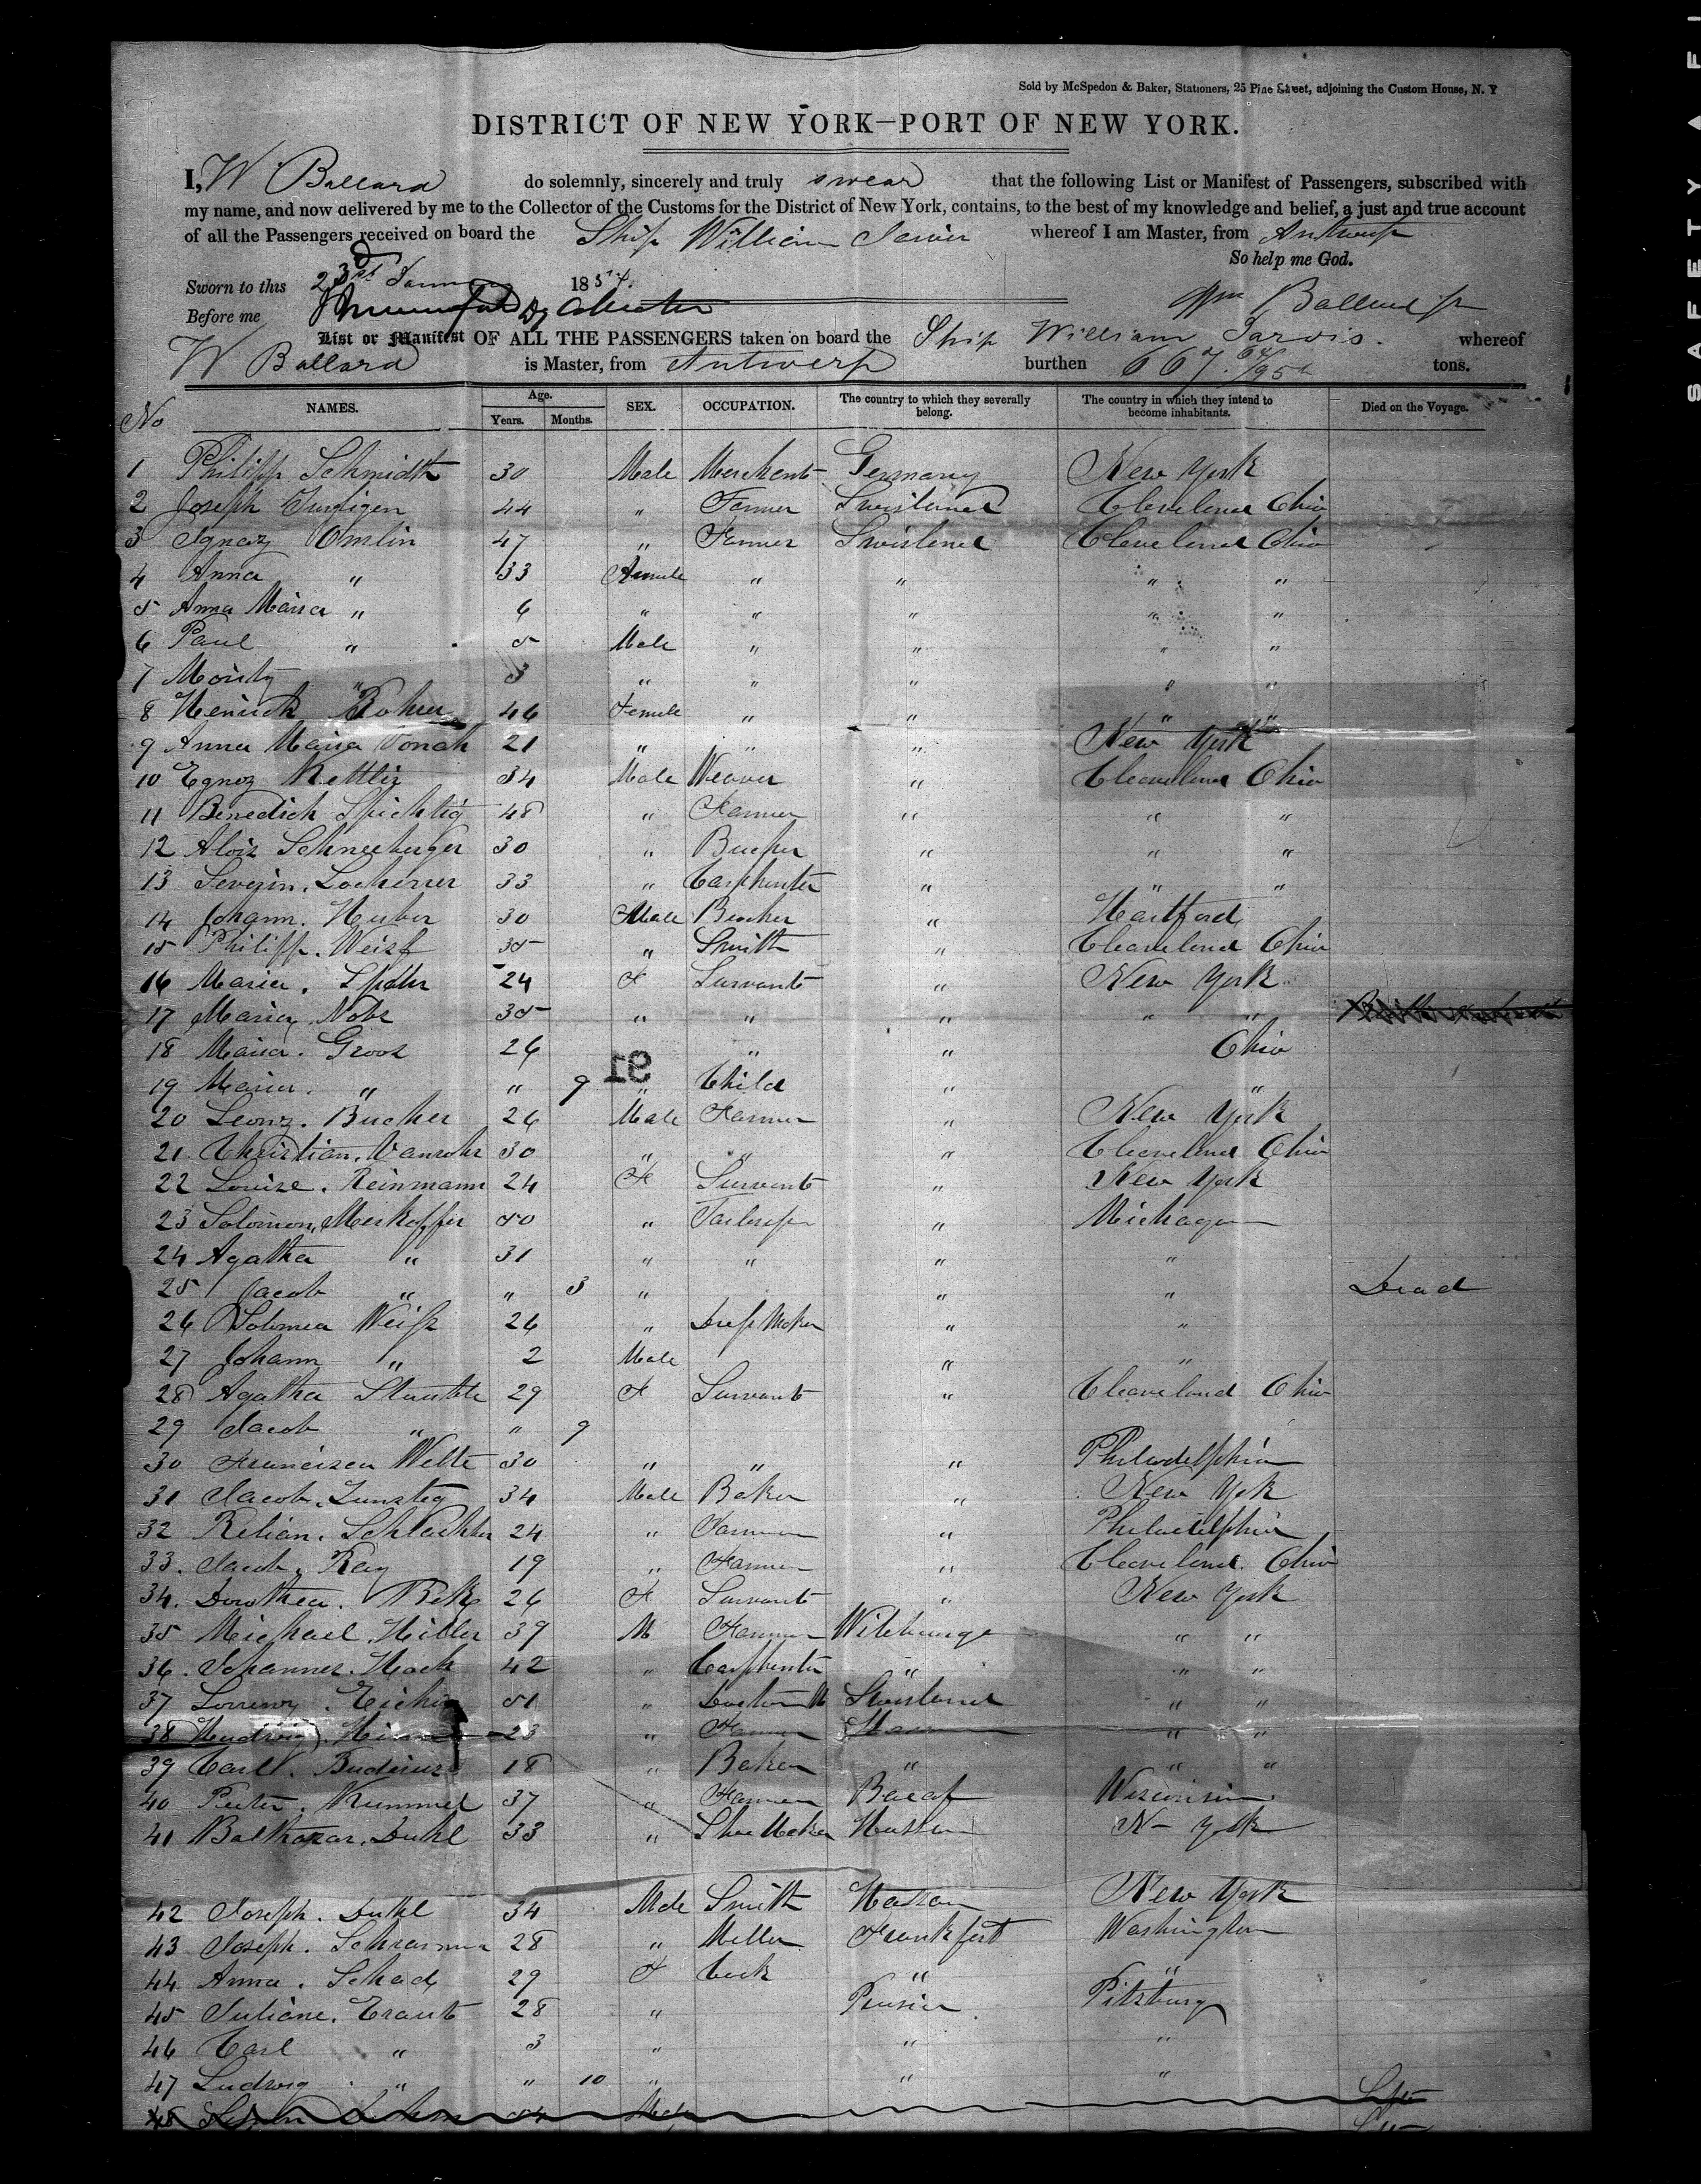 Sold by McSpedon & Baker, Stationers, 25 Pine Street, adjoining the Custom House, N. Y
DISTRICT OF NEW YORK—PORT OF NEW YORK.
I, W Ballard do solemnly, sincerely and truly swear that the following List or Manifest of Passengers, subscribed with
my name, and now delivered by me to the Collector of the Customs for the District of New York, contains, to the best of my knowledge and belief, a just and true account
of all the Passengers received on board the Ship William Jarvis whereof I am Master, from Antwerp
So help me God.
Sworn to this 23d January 1854.
Before me Wm Ballard Jr
List or Manifest OF ALL THE PASSENGERS taken on board the Ship William Jarvis. whereof
W Ballard is Master, from Antwerp burthen 667. 64/95 tons.
No NAMES. Age. Years. Months. SEX. OCCUPATION. The country to which they severally belong. The country in which they intend to become inhabitants. Died on the Voyage.
1 Philipp Schmidth 30 Male Merchant Germany New York
2 Joseph 44 " Farmer Swisland Cleveland Ohio
3 Ignaz Omlin 47 " Farmer Swisland Cleveland Ohio
4 Anna " 33 Female " " " "
5 Anna Maria " 6 " " " " "
6 Paul " 5 Male " " " "
7 Moritz " 3 " " " " "
8 Heinrich Rohrer 46 Female " " " "
9 Anna Maria Vonah 21 " " " New York
10 Egnoz Kettlir 34 Male Weaver " Cleaveland Ohio
11 Benedich Spichtig 48 " Farmer " " "
12 Alois Schneeberger 30 " " " "
13 Severin. Locherer 33 " Carphenter " " "
14 Johann. Huber 30 Male " Hartford
15 Philipp. Weisf 35 " Smith " Cleaveland Ohio
16 Maria. 24 F Survant " New York
17 Maria Nobs 35 " " " " "
18 Maria. Groos 26 " " Ohio
19 Maria. " " 9 " Child " "
20 Leonz. Bucher 26 Male Farmer " New York
21 Christian. Vanrohr 30 " " " Cleaveland Ohio
22 Louise. Reinmann 24 F Survant " New York
23 Solomon. Merkoffer 50 " " Michagan
24 Agatha " 31 " " " "
25 Jacob " " 3 " " " Dead
26 Solomea Weifs 26 " Drefs Maker " "
27 Johann " 2 Male " "
28 Agatha 29 F Survant " Cleaveland Ohio
29 Jacob " " 9
30 Francisca Welte 30 " " " Philadelphia
31 Jacob. Zumsteg 34 Male Baker " New York
32 Kilian. 24 " Farmer " Philadelphia
33. Jacob. Ray 19 " Farmer " Cleaveland. Ohio
34. Dorothea. 26 F Survant " New York
35 Michael. Hiller 39 M Farmer " "
36. Johannes. Hach 42 " Carphenter " " "
37 Lorrenz. 51 " Swisland " "
38 23 " Farmer " "
39 Carl. Buderus 18 " Baker " " "
40 Peter. Kummel 37 " Farmer Wisconsin
41 Balthazar. Duhl 33 " Shoe Maker Hassen N- York
42 Joseph. Duhl 34 Male Smith Hassan New York
43 Joseph. 28 " Miller Frankfort Washington
44 Anna. Schad 29 F Cook " "
45 Juliane. Traut 28 " Prusia Pitsburg
46 Carl " 3 " " "
47 Ludwig " " 10 " " "
48